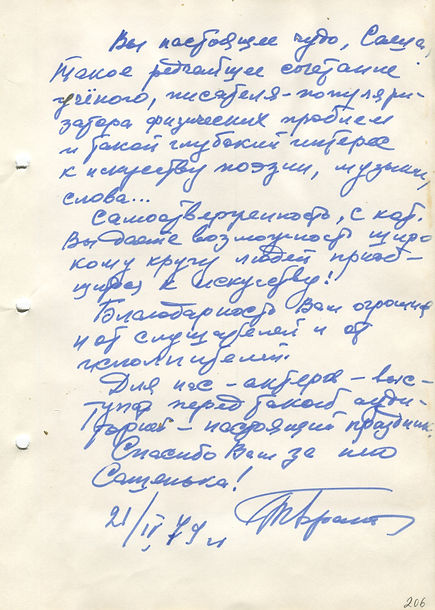 Вы настоящее чудо, Саша,
Такое редчайшее сочетание
учёного, писателя-популяри-
затора физических проблем
и такой глубокий интерес
к искусству поэзии, музыки,
слова...
Самоотверженность, с кот.
Вы даете возможность широ
кому кругу людей приоб-
щиться к искусству!
Благодарность Вам огромная
и от слушателей и от
исполнителей.
Для нас - актеров - выс-
тупать перед такой ауди-
торией - настоящий праздник
Спасибо Вам за это
Сашенька!
21/IV 79 г
206